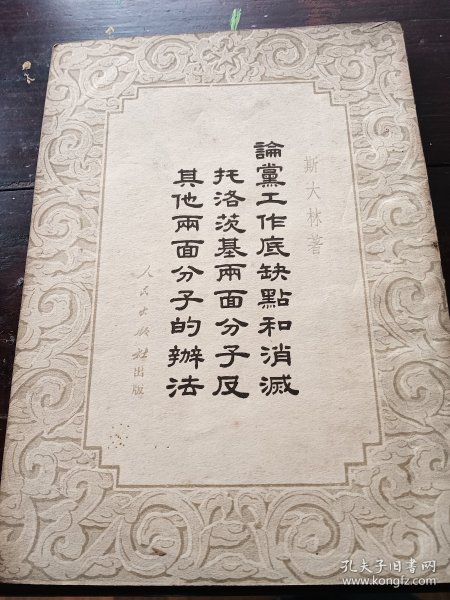 斯大林著
論黨工作底缺點和消滅
托洛茨基兩面分子及
其他兩面分子的辦法
人民出版社出版
孔夫子旧书网
www.kongfz.com